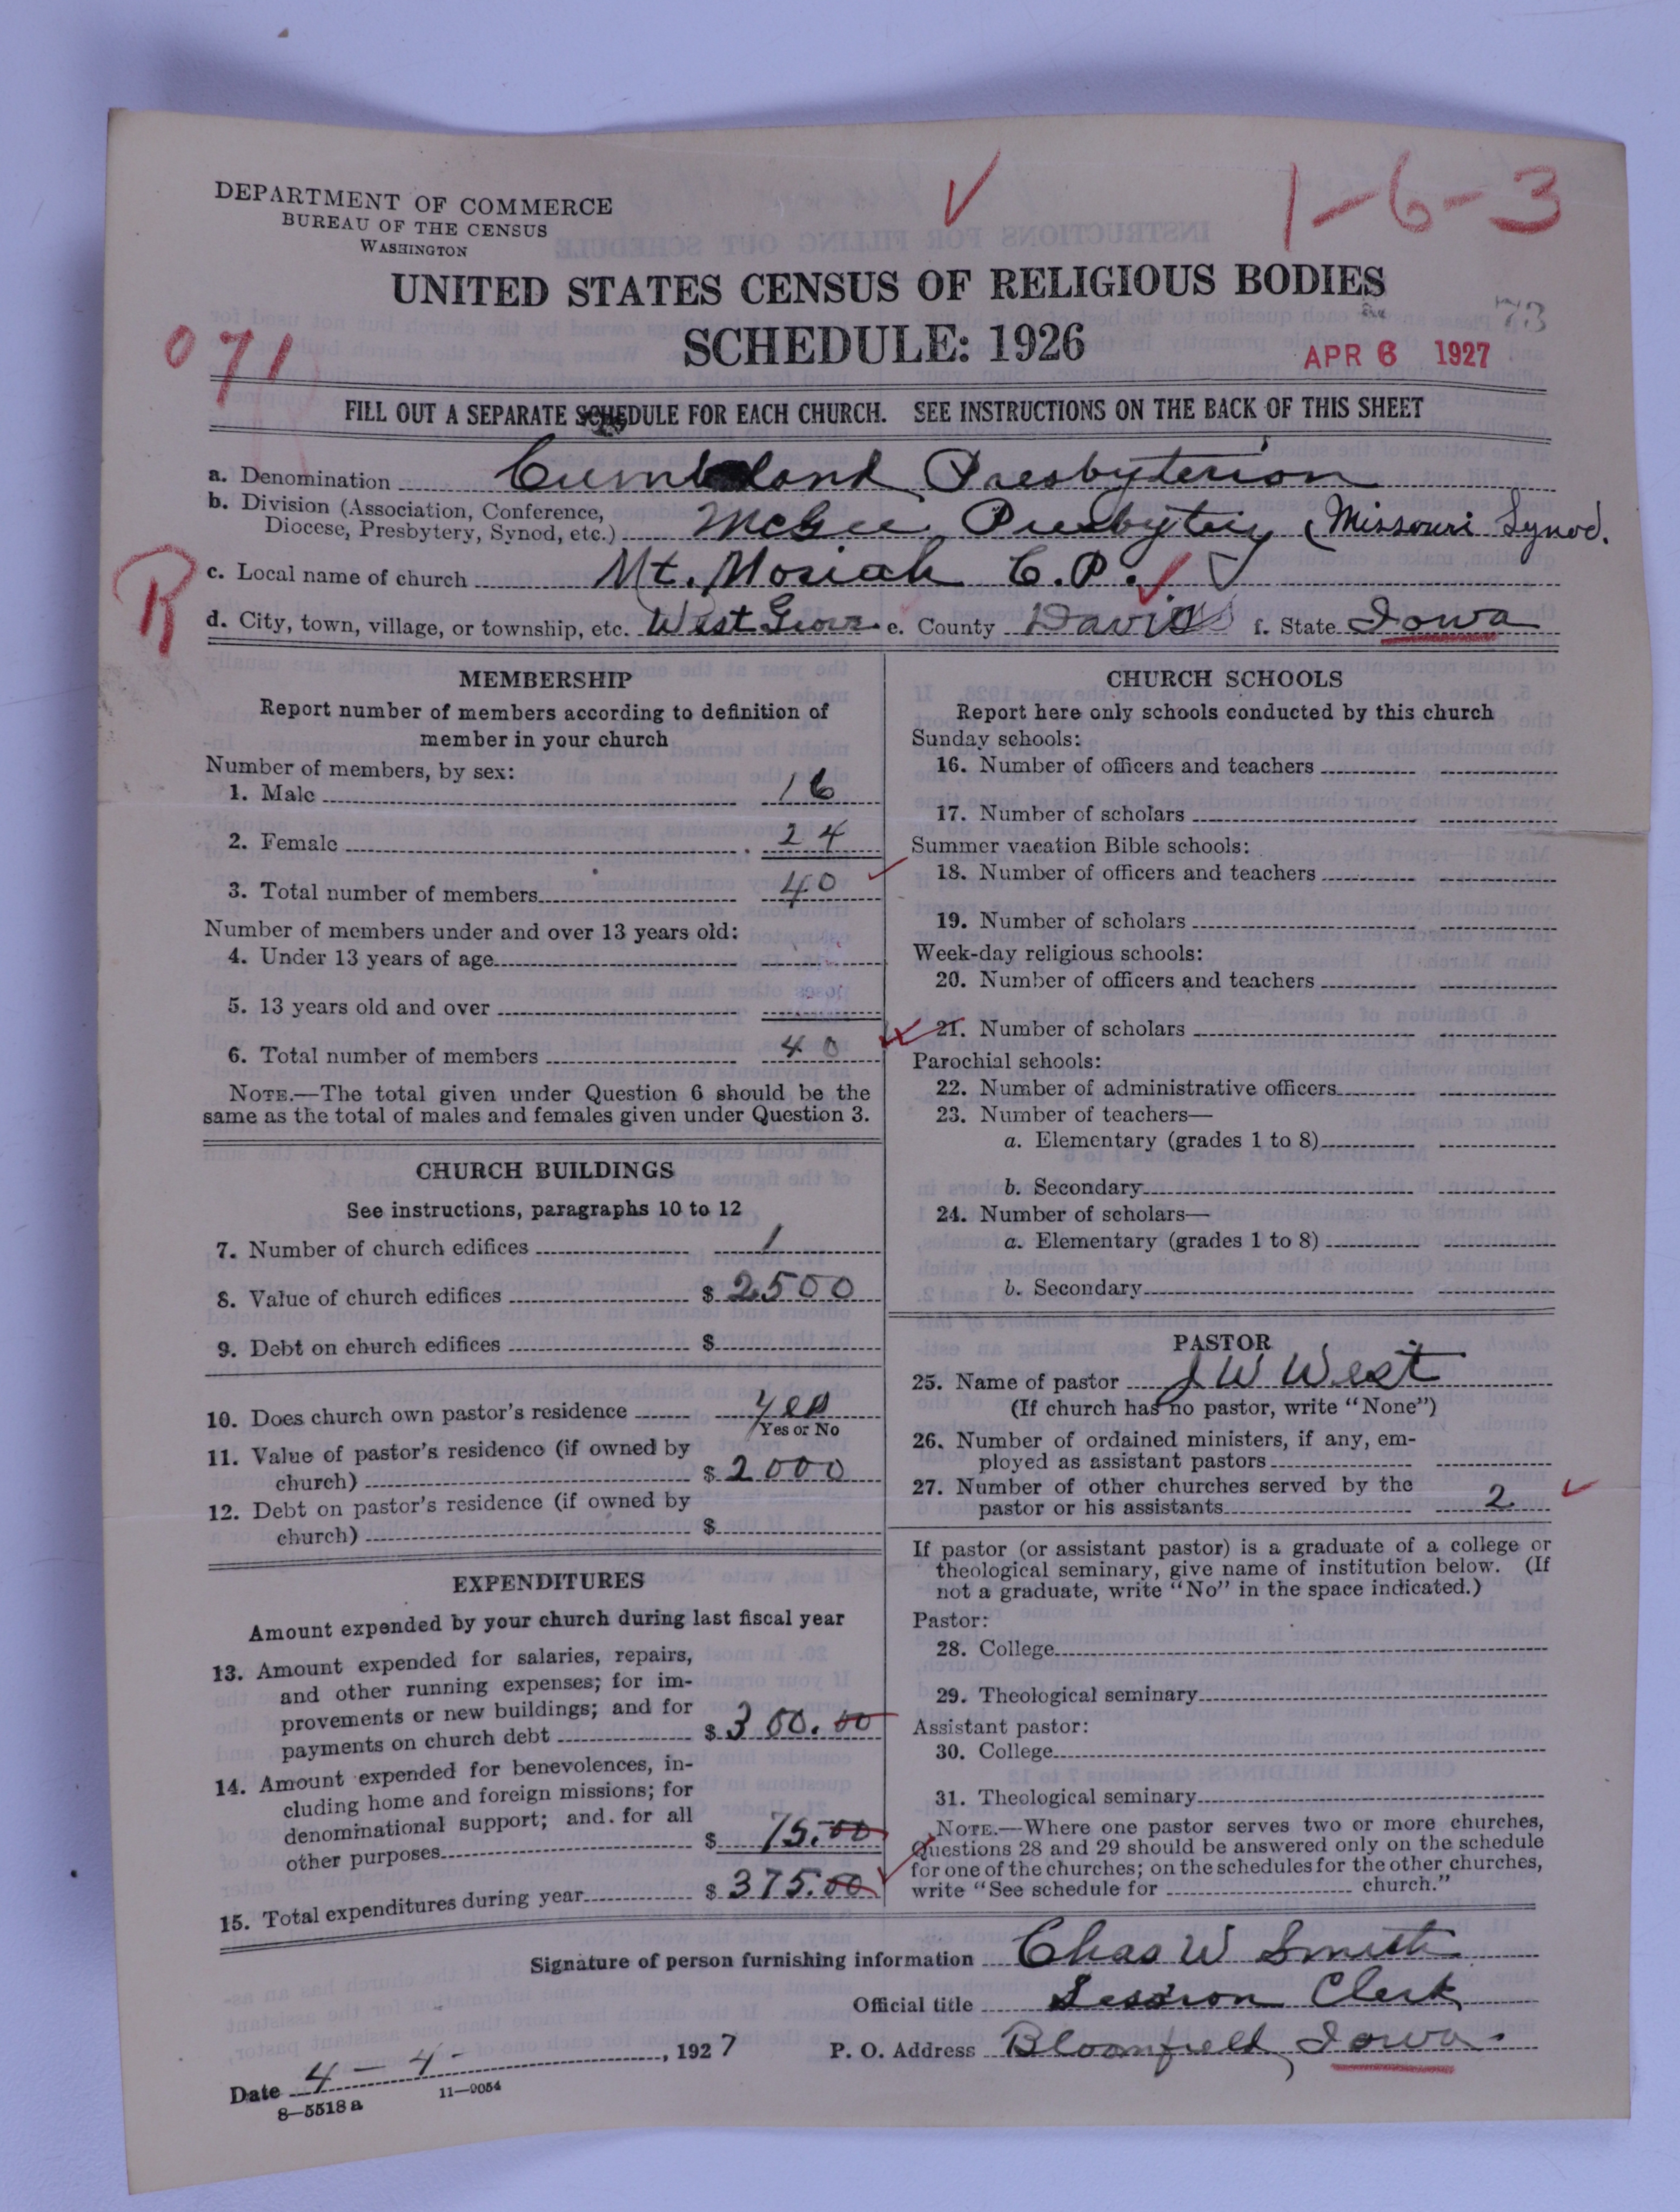 DEPARTMENT OF COMMERCE
BUREAU OF THE CENSUS
WASHINGTON
1-6-3
UNITED STATES CENSUS OF RELIGIOUS BODIES
SCHEDULE: 1926
73
071
APR 6 1927
FILL OUT A SEPARATE SCHEDULE FOR EACH CHURCH. SEE INSTRUCTIONS ON THE BACK OF THIS SHEET
a. Denomination Cumberland Presbyterian
b. Division (Association, Conference,
Diocese, Presbytery, Synod, etc.) McGee Presbytery (Missouri Synod.
R
c. Local name of church Mt. Moriah C.P.
d. City, town, village, or township, etc. West Grove e. County Davis f. State Iowa
MEMBERSHIP
Report number of members according to definition of
member in your church
Number of members, by sex:
1. Male 16
2. Female 24
3. Total number of members 40
Number of members under and over 13 years old:
4. Under 13 years of age
5. 13 years old and over
6. Total number of members 40
NOTE.—The total given under Question 6 should be the
same as the total of males and females given under Question 3.
CHURCH BUILDINGS
See instructions, paragraphs 10 to 12
7. Number of church edifices 1
8. Value of church edifices $ 2500
9. Debt on church edifices $
10. Does church own pastor's residence yes
Yes or No
11. Value of pastor's residence (if owned by
church) $ 2000
12. Debt on pastor's residence (if owned by
church) $
EXPENDITURES
Amount expended by your church during last fiscal year
13. Amount expended for salaries, repairs,
and other running expenses; for im-
provements or new buildings; and for
payments on church debt $ 300.00
14. Amount expended for benevolences, in-
cluding home and foreign missions; for
denominational support; and for all
other purposes $ 75.00
15. Total expenditures during year $ 375.00
CHURCH SCHOOLS
Report here only schools conducted by this church
Sunday schools:
16. Number of officers and teachers
17. Number of scholars
Summer vacation Bible schools:
18. Number of officers and teachers
19. Number of scholars
Week-day religious schools:
20. Number of officers and teachers
21. Number of scholars
Parochial schools:
22. Number of administrative officers
23. Number of teachers—
a. Elementary (grades 1 to 8)
b. Secondary
24. Number of scholars—
a. Elementary (grades 1 to 8)
b. Secondary
PASTOR
25. Name of pastor J W West
(If church has no pastor, write "None")
26. Number of ordained ministers, if any, em-
ployed as assistant pastors
27. Number of other churches served by the
pastor or his assistants 2
If pastor (or assistant pastor) is a graduate of a college or
theological seminary, give name of institution below. (If
not a graduate, write "No" in the space indicated.)
Pastor:
28. College
29. Theological seminary
Assistant pastor:
30. College
31. Theological seminary
NOTE.—Where one pastor serves two or more churches,
Questions 28 and 29 should be answered only on the schedule
for one of the churches; on the schedules for the other churches,
write "See schedule for church."
Signature of person furnishing information Chas W Smith
Official title Session Clerk
Date 4-4-, 1927 P. O. Address Bloomfield, Iowa.
8—5518 a 11—9054